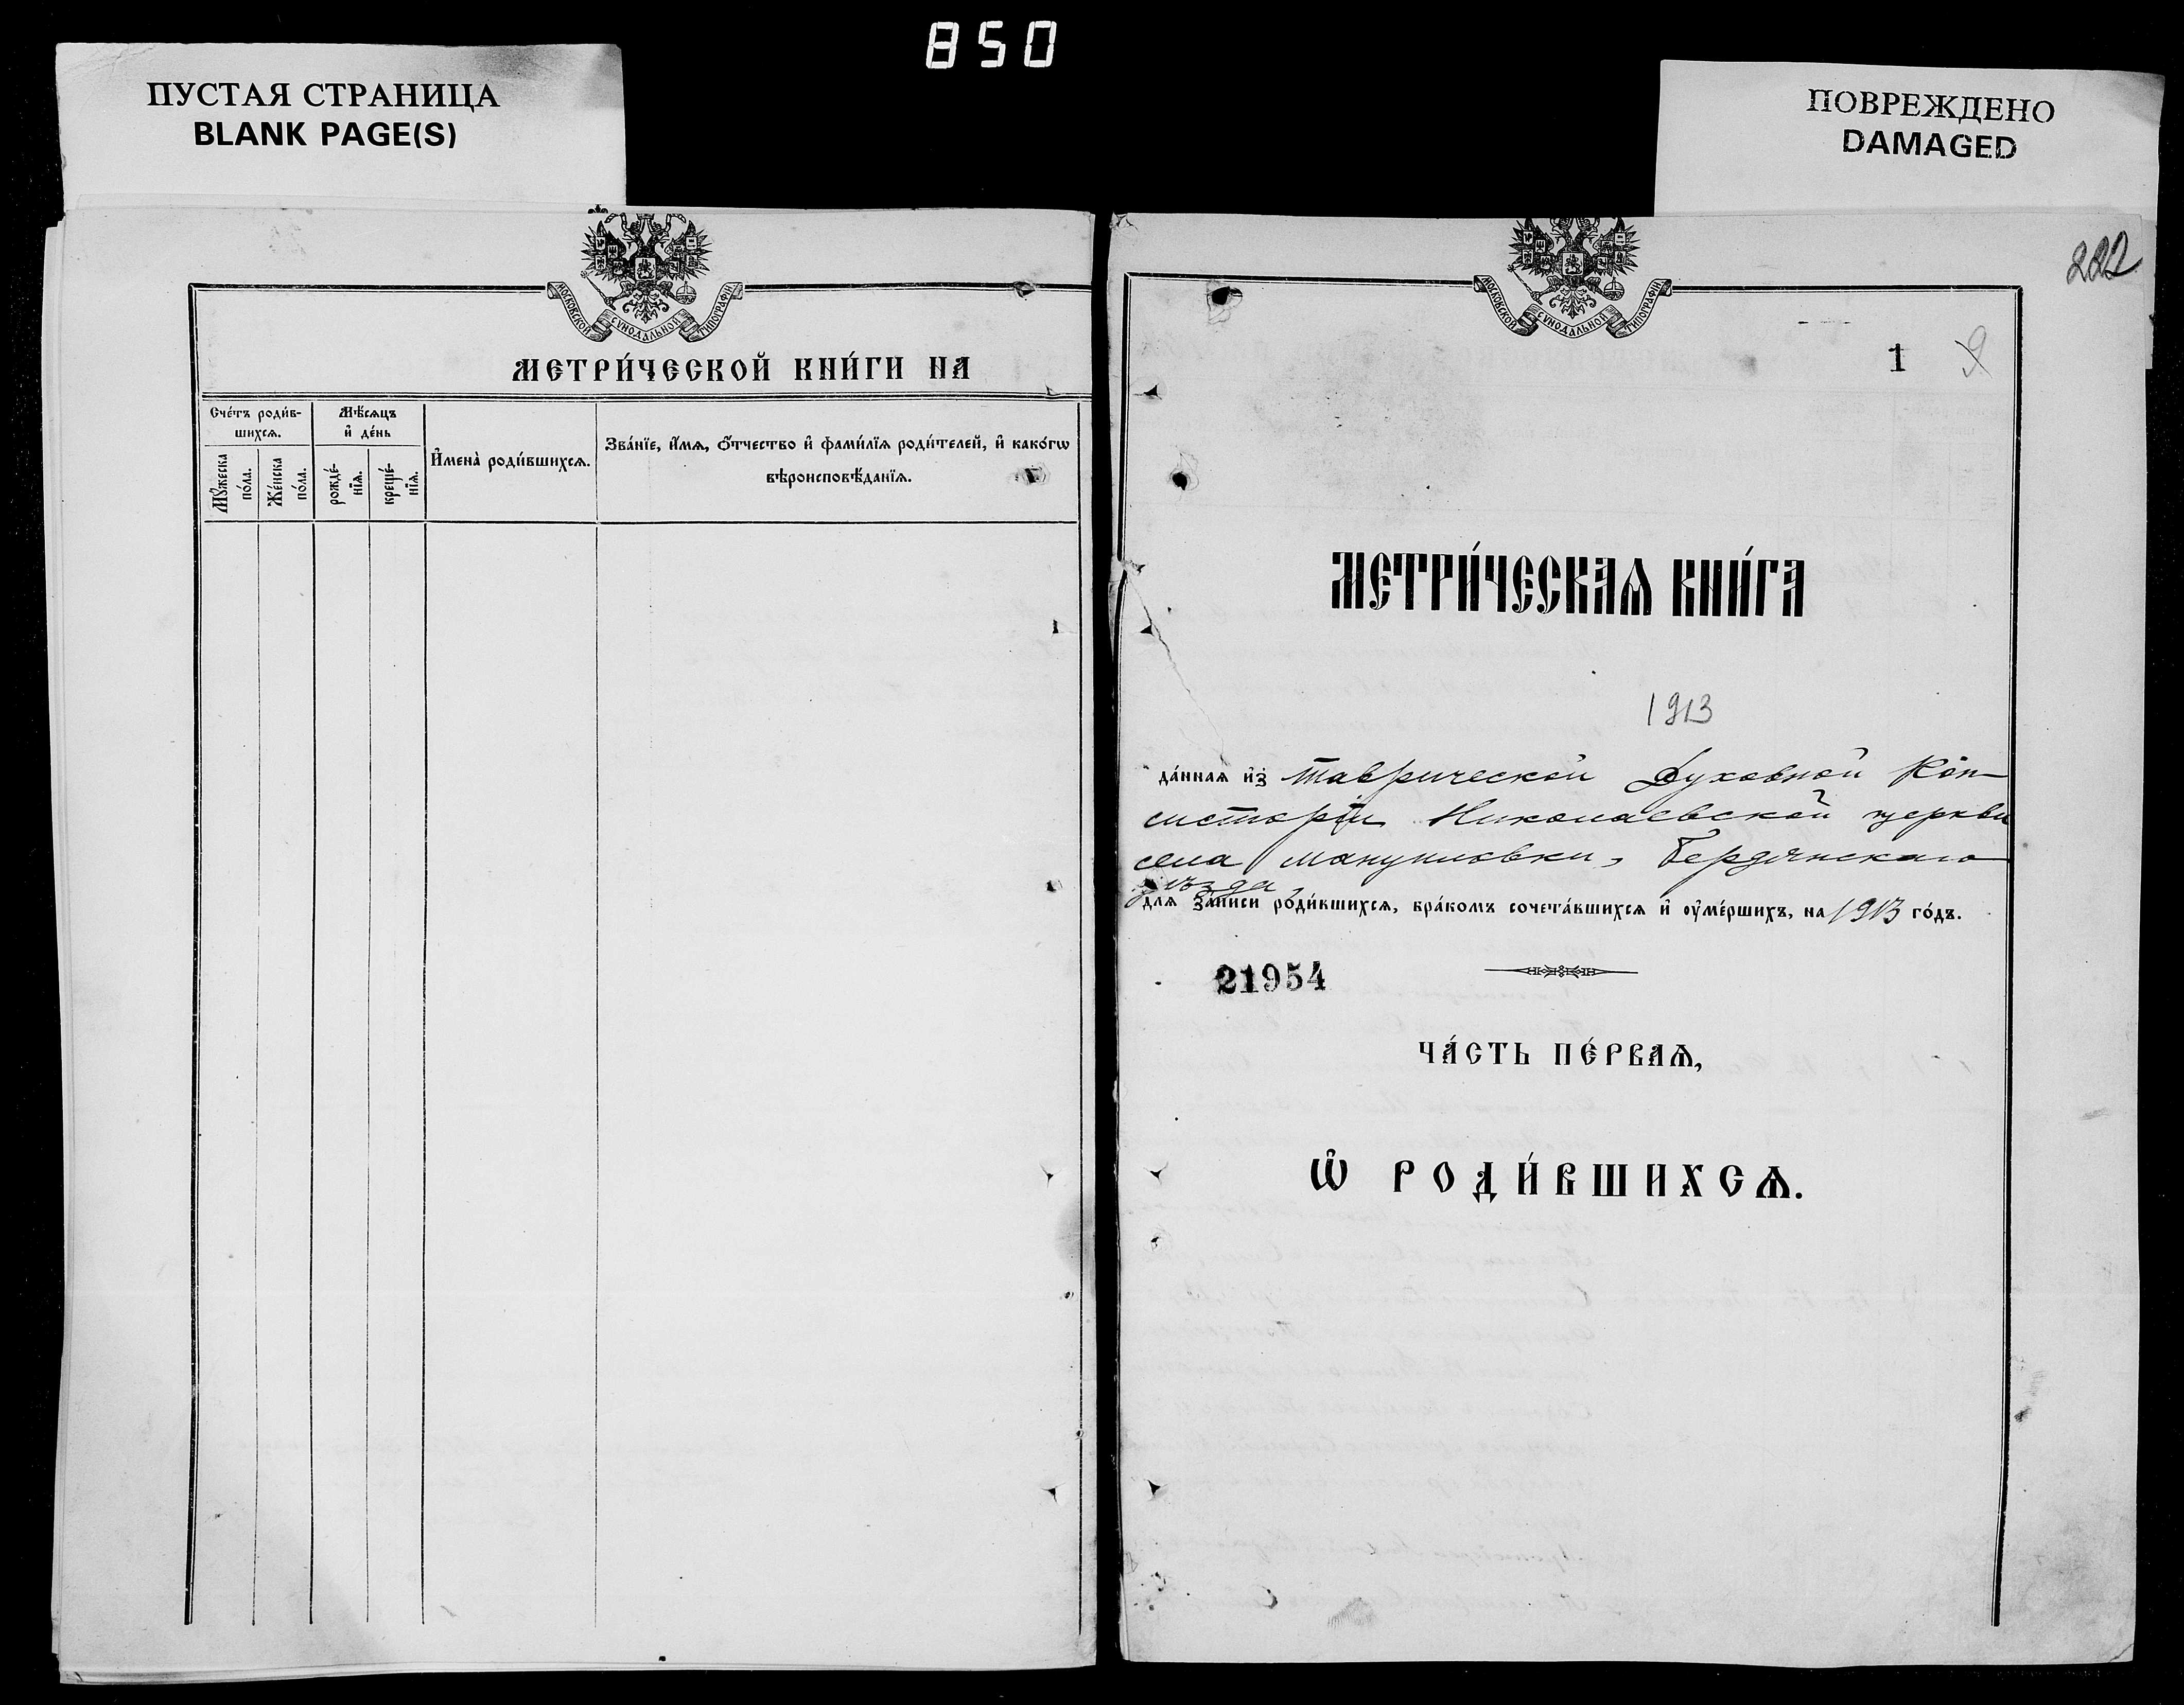 850
ПУСТАЯ СТРАНИЦА
BLANK PAGE(S)
ПОВРЕЖДЕНО
DAMAGED
МОСКОВСКОЙ СѴНОДАЛЬНОЙ ТИПОГРАФІИ
МЕТРИ́ЧЕСКОЙ КНИ́ГИ НА
Сче́тъ роди́в-
шихсѧ.
Мѣ́сѧцъ
и҆ де́нь
И҆мена̀ роди́вшихсѧ.
Зва́нїе, и҆́мѧ, ѻ҆́тчество и҆ фами́лїѧ роди́телей, и҆ како́гѡ
вѣроисповѣ́данїѧ.
Мꙋ́жеска
по́ла.
Же́нска
по́ла.
рожде́-
нїѧ.
креще́-
нїѧ.
222
МОСКОВСКОЙ СѴНОДАЛЬНОЙ ТИПОГРАФІИ
1 9
МЕТРИ́ЧЕСКАѦ КНИ́ГА
1913
да́ннаѧ и҆з̾ Таврической Духовной Кон-
систоріи Николаевской церкви
села Мануиловки, Бердянскаго
уѣзда
длѧ за́писи роди́вшихсѧ, бра́комъ сочета́вшихсѧ и҆ ᲂу҆ме́ршихъ, на 1913 го́дъ.
21954
ЧА́СТЬ ПЕ́РВАѦ,
Ѡ҆ РОДИ́ВШИХСѦ.